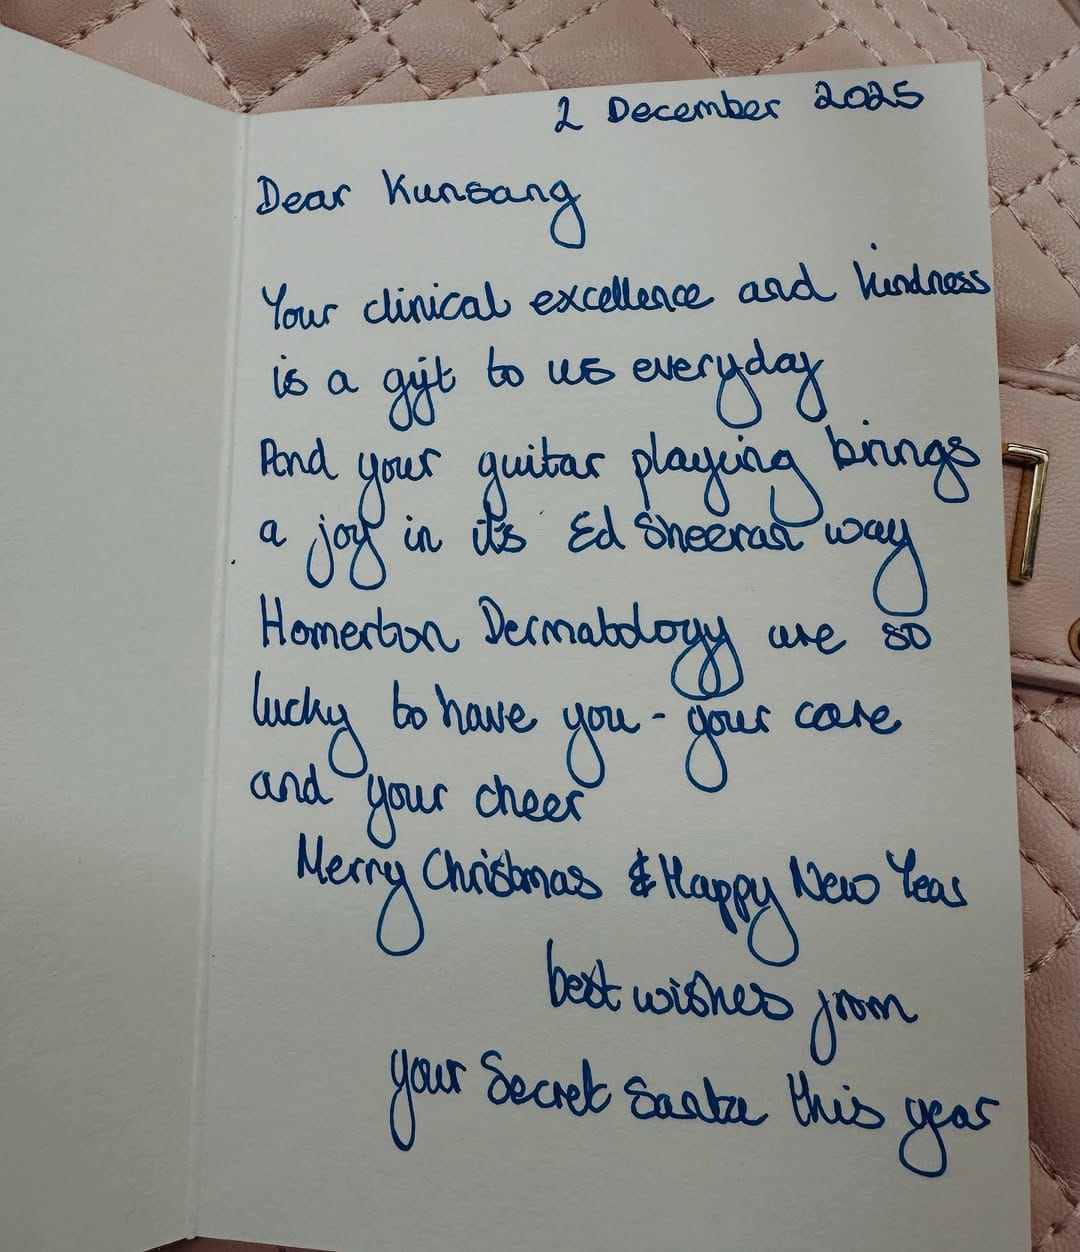 2 December 2025
Dear Kunsang
Your clinical excellence and kindness
is a gift to us everyday
And your guitar playing brings
a joy in its Ed Sheeran way
Homerton Dermatology are so
lucky to have you - your care
and your cheer
Merry Christmas & Happy New Year
best wishes from
your Secret Santa this year